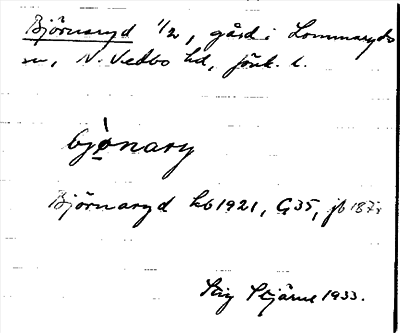 Björnaryd 1/2, gård i Lommaryds
sn, N. Vedbo hd, Jönk. l.
bjònary
Björnaryd kb 1921, G35, jb 187
Stig Stjärne 1933.